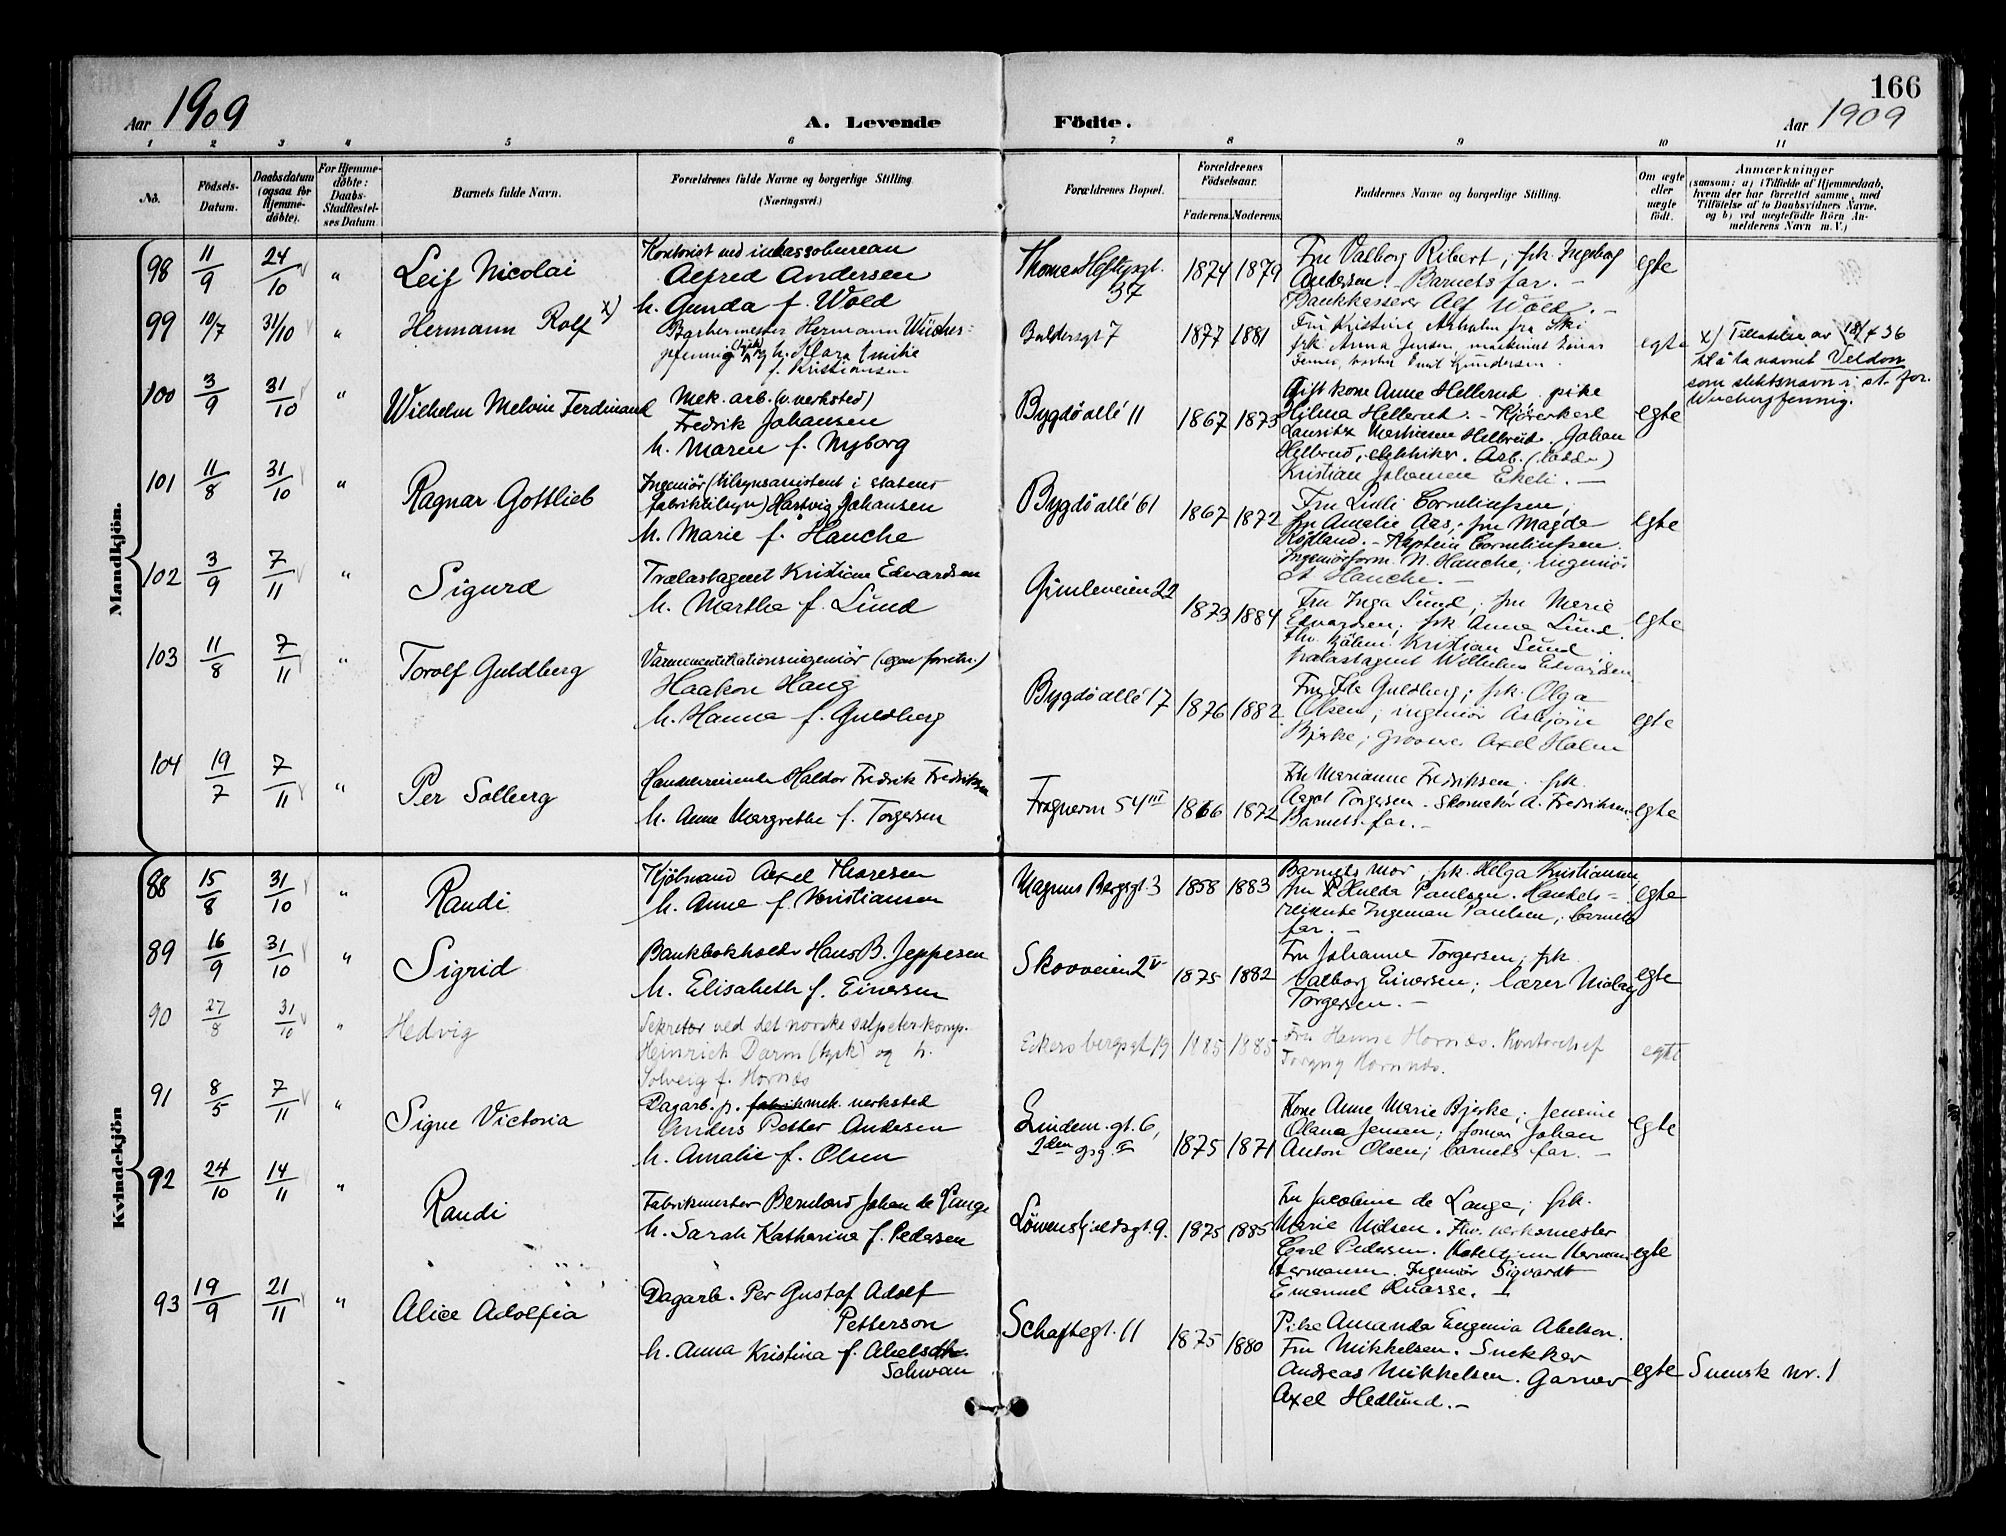 166
Aar 1909
A. Levende Födte.
Aar 1909
1 2 3 4 5 6 7 8 9 10 11
No.
Födsels-Datum.
Daabsdatum (ogsaa for Hjemmedöbte).
For Hjemmedöbte: Daabs-Stadfæstelses Datum
Barnets fulde Navn.
Forældrenes fulde Navne og borgerlige Stilling. (Næringsvei.)
Forældrenes Bopæl.
Forældrenes Födselsaar.
Faderens. Moderens.
Faddernes Navne og borgerlige Stilling.
Om ægte eller uægte födt.
Anmærkninger
(saasom: a) i Tilfælde af Hjemmedaab,
hvem der har forrettet samme, med
Tilföielse af to Daabsvidners Navne,
og b) ved uegtefödte Börn Anmelderens Navn m.V.)
Mandkjön.
98 11/9 24/10 " Leif Nicolai
Kontorist ved inkassobureau
Alfred Andersen
h. Gunda f. Wold
Thomas Heftyesgt. 37
1874 1879
Fru Valborg Ribert, frk. Ingeborg
Andersen. Barnets far. -
Bankkasserer Alf Wold. -
egte
99 10/7 31/10 " Hermann Rolf x)
Barbermester Hermann Wücher-
pfennig (tysk) og h. Klara Emilie
f. Kristiansen
Baldersgt 7
1877 1881
Fru Kristine Asholm fra Ski
frk. Anna Jensen, maskinist Einar
egte
x) Tillatelse av 18/4 36
til å ta navnet Veldon
som slektsnavn i st. for
Wucherpfennig.
100 3/9 31/10 " Wilhelm Melvin Ferdinand
Mek. arb. (v. verksted)
Fredrik Johansen
h. Maren f. Nyborg
Bygdö allé 11
1867 1873
Gift kone Anne Hellerud, pike
Hilma Hellerud. - Kjörekarl
Lauritz Mathisen Hellerud. Johan
Hellerud, elektriker. Arb.
Kristian Johansen Ekeli. -
egte
101 11/8 31/10 " Ragnar Gottlieb
Ingeniör (tilsynsassistent i statens
fabriktilsyn) Hartvig Johansen
h. Marie f. Hauche
Bygdö allé 61
1867 1872
Fru Lulli Corneliussen,
fru Amalie Aas; fru Magda
Rödland. - Kaptein Corneliussen.
Ingeniörform. N. Hauche, ingeniör
Hauche. -
egte
102 3/9 7/11 " Sigurd
Trælastagent Kristian Edvardsen
h. Marthe f. Lund
Gimleveien 22
1873 1884
Fru Inga Lund, fru Marie
Edvardsen, frk. Anna Lund.
Kristian Lund
trælastagent Wilhelm Edvardsen
egte
103 11/8 7/11 " Torolf Guldberg
Varmeventilationsingeniör (egen forretn.)
Haakon Haug
h. Hanna f. Guldberg
Bygdö allé 17
1876 1882
Fru Ida Guldberg; frk. Olga
Olsen; ingeniör Asbjörn
Bjerke; Grosserer Axel Holm
egte
104 19/7 7/11 " Per Solberg
Handelsreisende Haldor Fredrik Fredriksen
h. Anne Margrethe f. Torgersen
Frognerv 54 III
1866 1872
Fru Marianne Fredriksen, frk.
Aagot Torgersen. Skomaker A. Fredriksen.
Barnets far. -
egte
Kvindekjön
88 15/8 31/10 " Randi
Kjöbmand Axel Thoresen
h. Anne f. Kristiansen
Magnus Bergsgt. 3
1858 1883
Barnets mor, frk. Helga Kristiansen,
fru Hulda Paulsen. Handels-
reisende Ingeman Paulsen, barnets
far. -
egte
89 16/9 31/10 " Sigrid
Bankbokholder Hans B. Jeppesen
h. Elisabeth f. Einersen
Skovveien 2 V
1875 1882
Fru Johanne Torgersen, frk.
Valborg Einersen; lærer Nicolay
Torgersen. -
egte
90 27/8 31/10 " Hedvig
Sekretær ved det norske salpeterkomp.
Heinrich Darm (tysk) og h.
Solveig f. Hornæs
Eckersbergsgt 19
1885 1885
Fru Hanne Hornæs. Kontorchef
Torgny Hornnæs.
egte
91 8/5 7/11 " Signe Victoria
Dagarb. p. mek. verksted
Anders Petter Andersen
h. Amalie f. Olsen
Lindem. gt. 6,
2den opg. III
1875 1871
Kone Anne Marie Bjerke; Jensine
Olava Jensen; Johan
Anton Olsen; barnets far. -
egte
92 24/10 14/11 " Randi
Fabrikmester Bernhard Johan de Lange
h. Sarah Katharina f. Pedersen
Löwenskjoldsgt. 9.
1875 1885
Fru Jacobine de Lange; frk.
Marie Nilsen. Fhv. verksmester
Carl Pedersen. Herman
Hermansen. Ingeniör Sigvardt
Emanuel Knasse.
egte
93 19/9 21/11 " Alice Adolfia
Dagarb. Per Gustaf Adolf
Petterson
h. Anna Kristina f. Abelsoth
Schwan
Schaftegt. 11
1875 1880
Pike Amanda Eugenia Abelson.
Fru Mikkelsen. Snekker
Andreas Mikkelsen. Garver
Axel Hedlund. -
egte
Svensk nr. 1